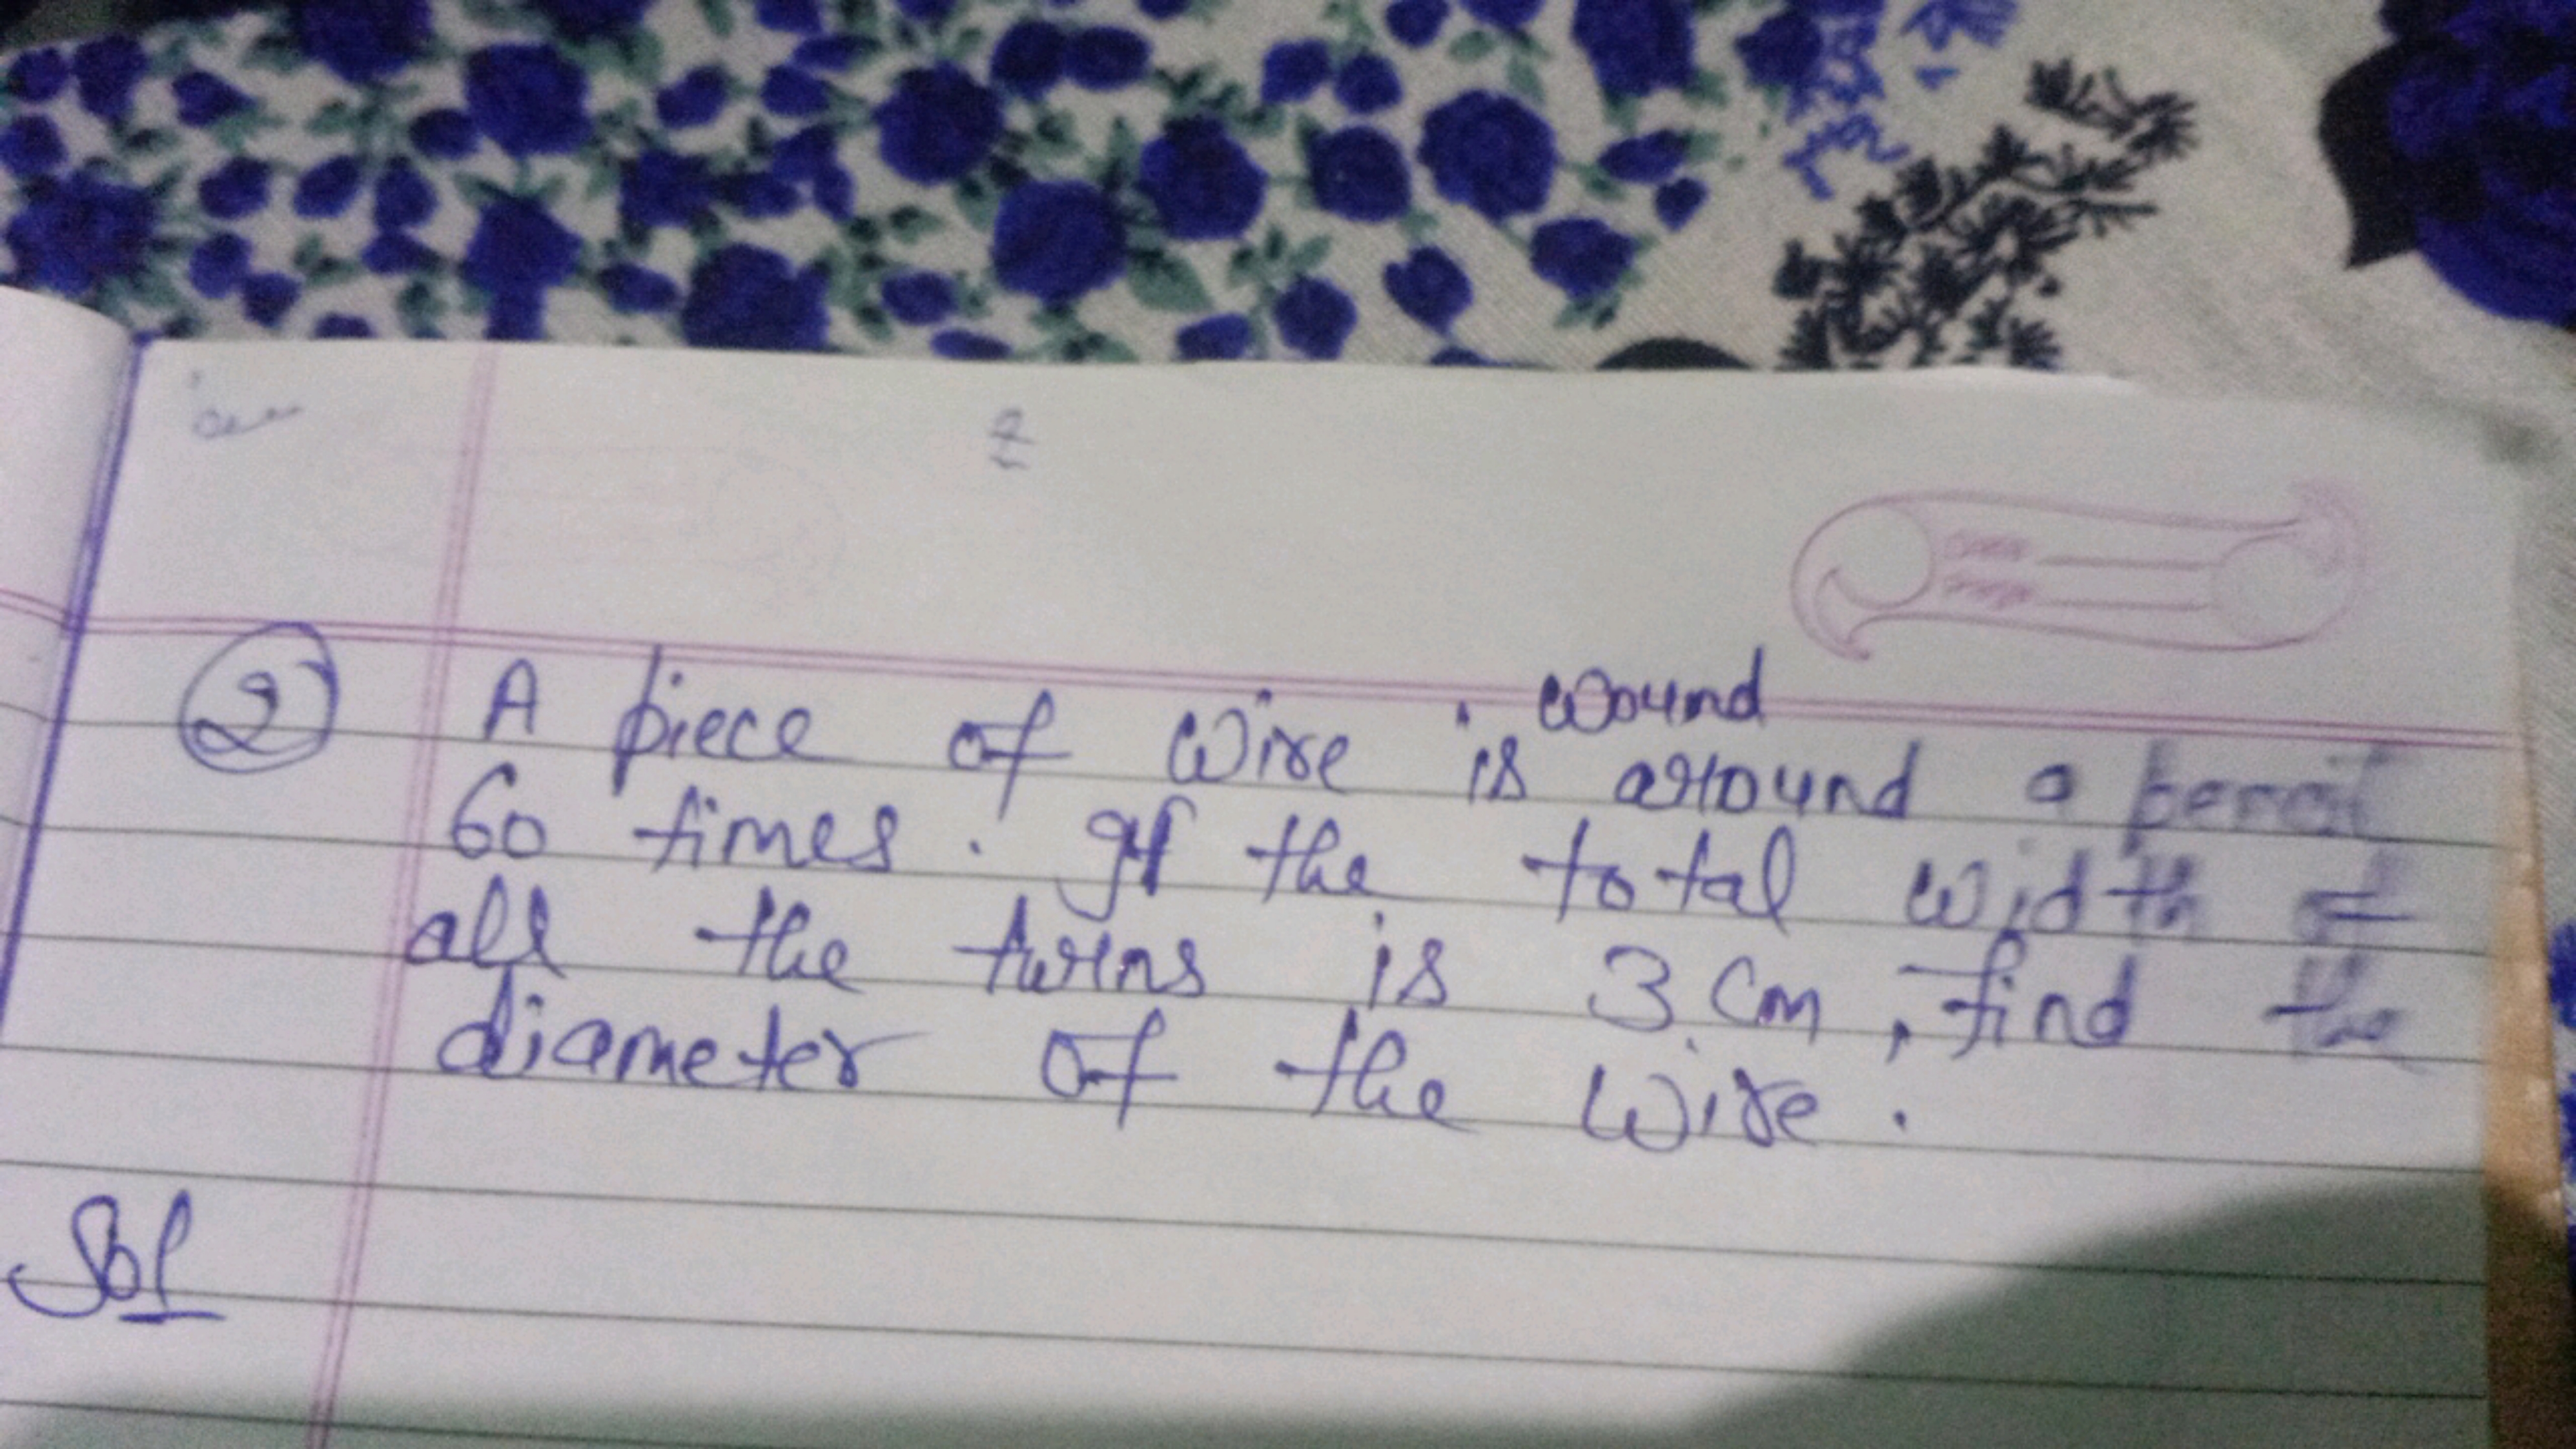 ② A piece of wire is wound around a pencil
60 times. If the total width of
all the turns is 3 cm, find the
diameter of the wire.
Sol